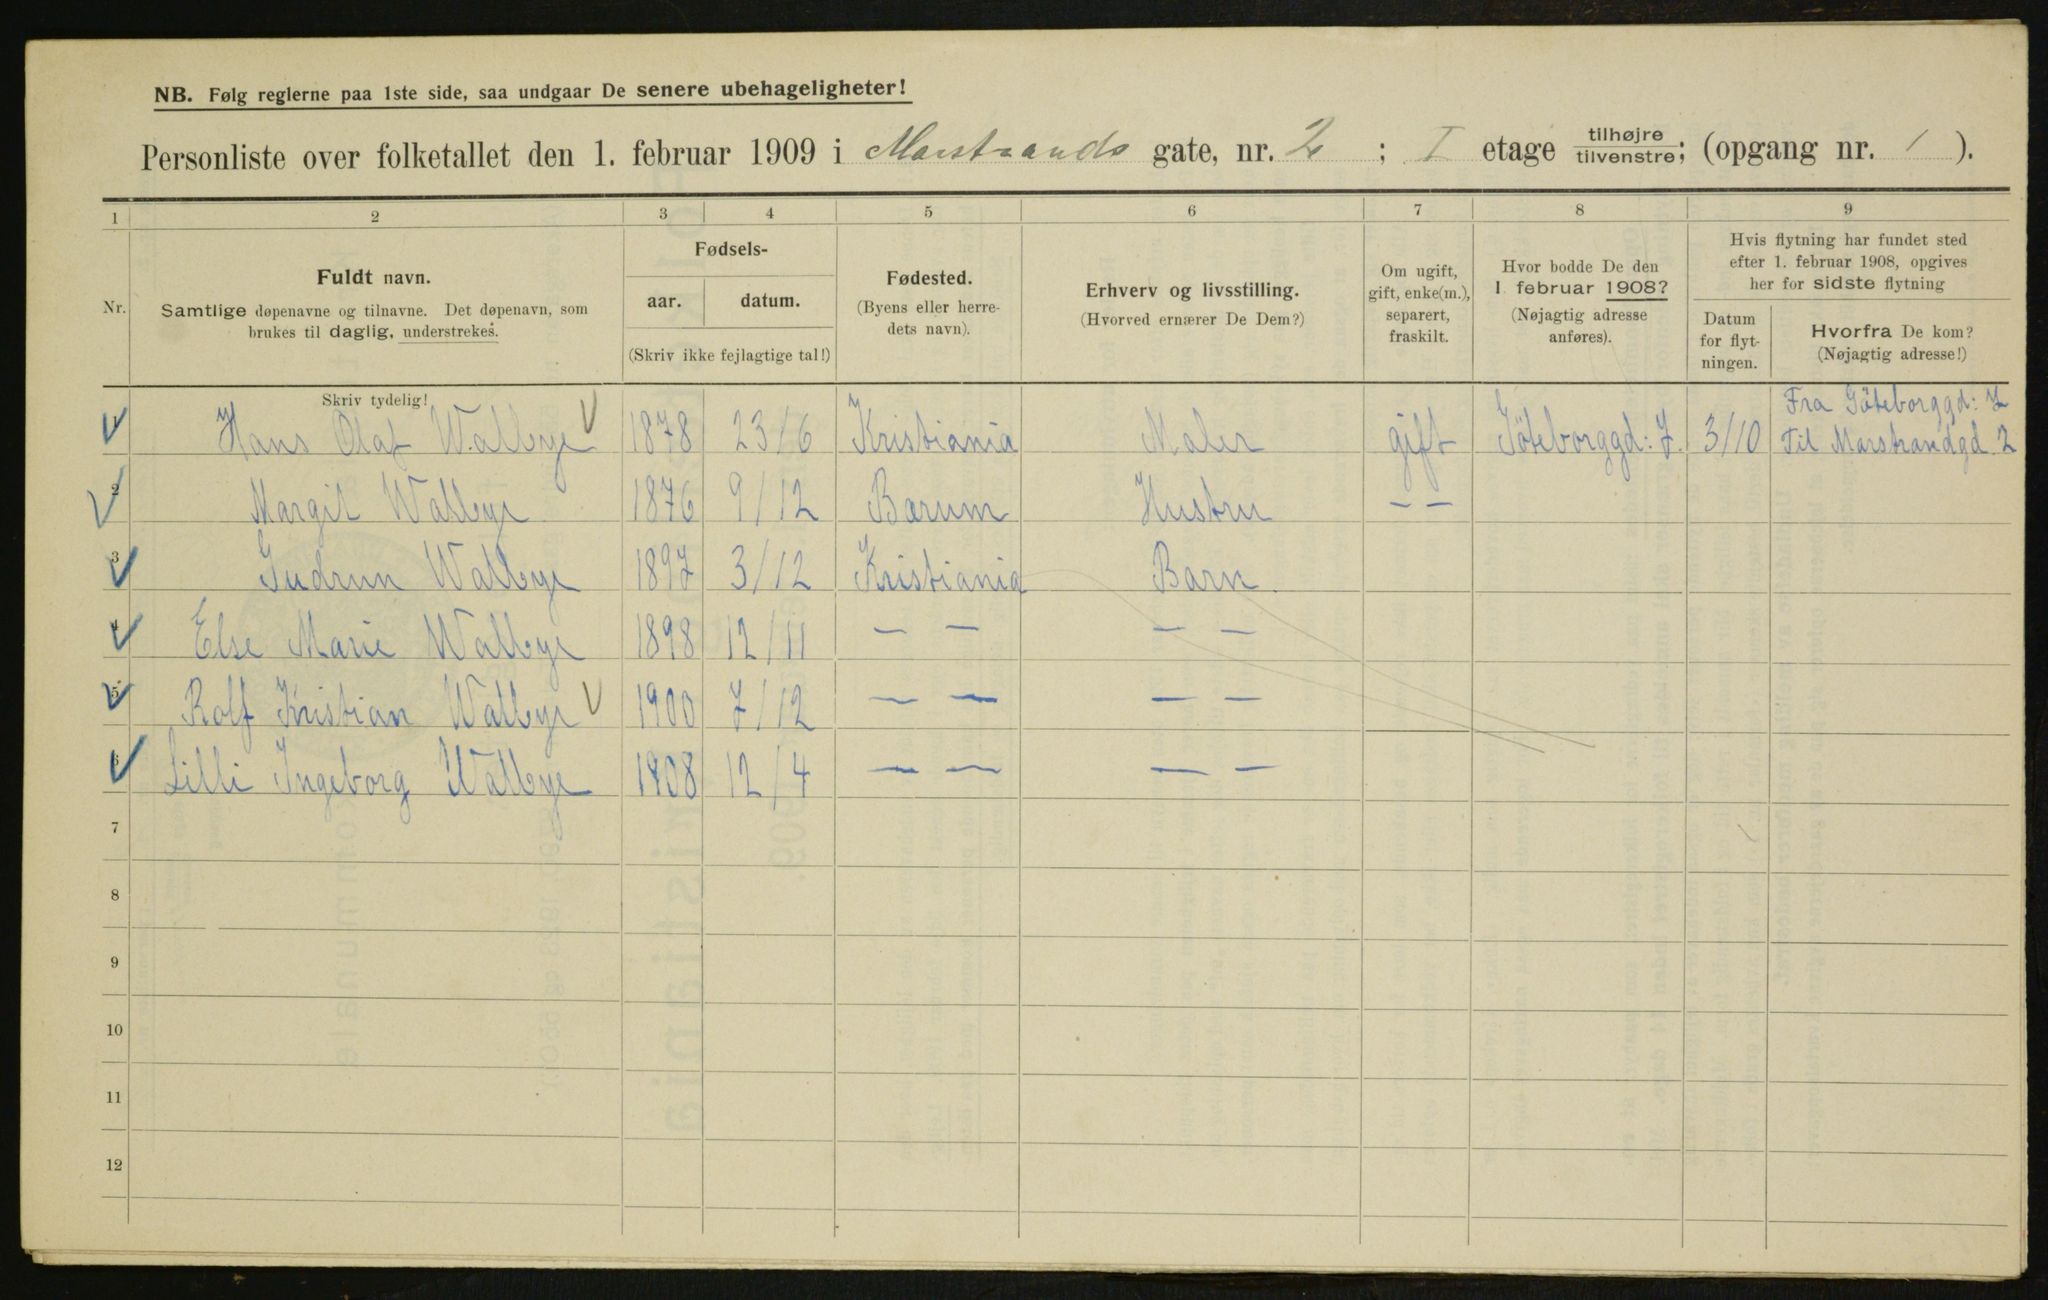 NB. Følg reglerne paa 1ste side, saa undgaar De senere ubehageligheter!
Personliste over folketallet den 1. februar 1909 i Marstrands gate, nr. 2 ; I etage tilhøjre tilvenstre; (opgang nr. 1 ).
1 2 3 4 5 6 7 8 9
Nr.
Fuldt navn.
Samtlige døpenavne og tilnavne. Det døpenavn, som
brukes til daglig, understrekes.
Fødsels-
aar. datum.
(Skriv ikke fejlagtige tal!)
Fødested.
(Byens eller herre-
dets navn).
Erhverv og livsstilling.
(Hvorved ernærer De Dem?)
Om ugift,
gift, enke(m.),
separert,
fraskilt.
Hvor bodde De den
1. februar 1908?
(Nøjagtig adresse
anføres).
Hvis flytning har fundet sted
efter 1. februar 1908, opgives
her for sidste flytning
Datum
for flyt-
ningen.
Hvorfra De kom?
(Nøjagtig adresse!)
Skriv tydelig!
Fra Göteborggd: 7
1 Hans Olaf Walbye 1878 23/6 Kristiania Maler gift Göteborggd: 7. 3/10 Til Marstrandgd 2
2 Margit Walbye 1876 9/12 Bærum Hustru — —
3 Gudrun Walbye 1897 3/12 Kristiania Barn.
4 Else Marie Walbye 1898 12/11 — — — —
5 Rolf Kristian Walbye 1900 7/12 — — — —
6 Lilli Ingeborg Walbye 1908 12/4 — — — —
7
8
9
10
11
12